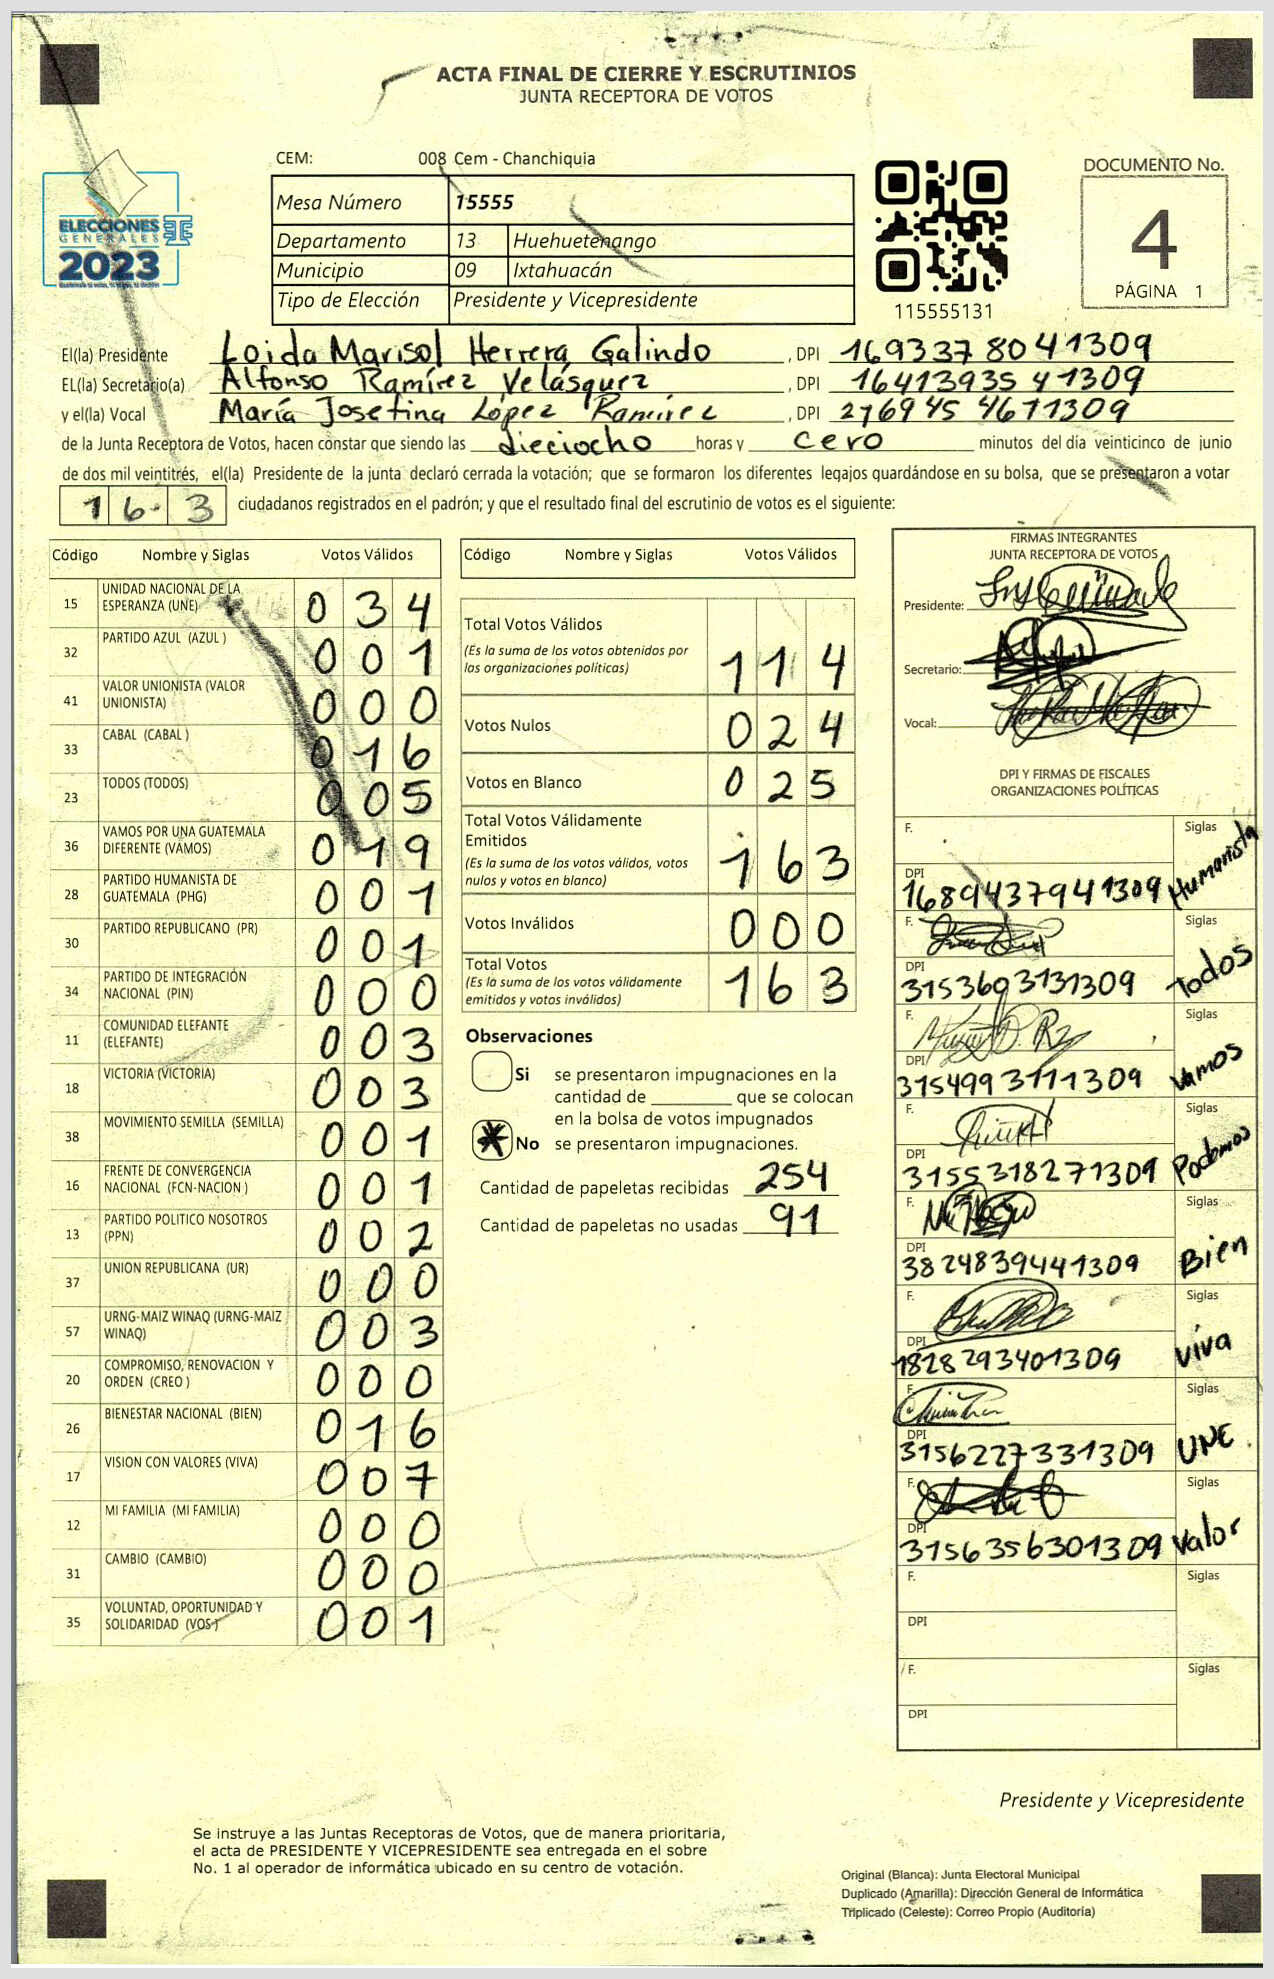 ACTA FINAL DE CIERRE Y ESCRUTINIOS
JUNTA RECEPTORA DE VOTOS
CEM: 008 Cem - Chanchiquia
ELECCIONES
GENERALES
2023
Mesa Número 15555
Departamento 13 Huehuetenango
Municipio 09 Ixtahuacán
Tipo de Elección Presidente y Vicepresidente
115555131
DOCUMENTO No.
4
PÁGINA 1
El(la) Presidente Loida Marisol Herrera Galindo , DPI 1693378041309
EL(la) Secretario(a) Alfonso Ramírez Velásquez , DPI 1641393541309
y el(la) Vocal María Josefina López Ramírez , DPI 2769454611309
de la Junta Receptora de Votos, hacen constar que siendo las dieciocho horas y cero minutos del día veinticinco de junio
de dos mil veintitrés, el(la) Presidente de la junta declaró cerrada la votación; que se formaron los diferentes legajos quardándose en su bolsa, que se presentaron a votar
163 ciudadanos registrados en el padrón; y que el resultado final del escrutinio de votos es el siguiente:
Código Nombre y Siglas Votos Válidos
15 UNIDAD NACIONAL DE LA ESPERANZA (UNE) 034
32 PARTIDO AZUL (AZUL ) 001
41 VALOR UNIONISTA (VALOR UNIONISTA) 000
33 CABAL (CABAL ) 016
23 TODOS (TODOS) 005
36 VAMOS POR UNA GUATEMALA DIFERENTE (VAMOS) 019
28 PARTIDO HUMANISTA DE GUATEMALA (PHG) 001
30 PARTIDO REPUBLICANO (PR) 001
34 PARTIDO DE INTEGRACIÓN NACIONAL (PIN) 000
11 COMUNIDAD ELEFANTE (ELEFANTE) 003
18 VICTORIA (VICTORIA) 003
38 MOVIMIENTO SEMILLA (SEMILLA) 001
16 FRENTE DE CONVERGENCIA NACIONAL (FCN-NACION ) 001
13 PARTIDO POLITICO NOSOTROS (PPN) 002
37 UNION REPUBLICANA (UR) 000
57 URNG-MAIZ WINAQ (URNG-MAIZ WINAQ) 003
20 COMPROMISO, RENOVACION Y ORDEN (CREO ) 000
26 BIENESTAR NACIONAL (BIEN) 016
17 VISION CON VALORES (VIVA) 007
12 MI FAMILIA (MI FAMILIA) 000
31 CAMBIO (CAMBIO) 000
35 VOLUNTAD, OPORTUNIDAD Y SOLIDARIDAD (VOS ) 001
Código Nombre y Siglas Votos Válidos
Total Votos Válidos 114
(Es la suma de los votos obtenidos por
las organizaciones políticas)
Votos Nulos 024
Votos en Blanco 025
Total Votos Válidamente
Emitidos 163
(Es la suma de los votos válidos, votos
nulos y votos en blanco)
Votos Inválidos 000
Total Votos 163
(Es la suma de los votos válidamente
emitidos y votos inválidos)
Observaciones
Si se presentaron impugnaciones en la
cantidad de ________ que se colocan
en la bolsa de votos impugnados
No se presentaron impugnaciones.
Cantidad de papeletas recibidas 254
Cantidad de papeletas no usadas 91
FIRMAS INTEGRANTES
JUNTA RECEPTORA DE VOTOS
Presidente:
Secretario:
Vocal:
DPI Y FIRMAS DE FISCALES
ORGANIZACIONES POLÍTICAS
F. Siglas
DPI 1689437941309 Humanista
F. Siglas
DPI 3153603131309 Todos
F. Siglas
DPI 3154993111309 Vamos
F. Siglas
DPI 3155318271309 Podemos
F. Siglas
DPI 3824839441309 Bien
F. Siglas
DPI 1828293401309 Viva
F. Siglas
DPI 3156227331309 UNE
F. Siglas
DPI 3156356301309 Valor
F. Siglas
DPI
F. Siglas
DPI
Presidente y Vicepresidente
Se instruye a las Juntas Receptoras de Votos, que de manera prioritaria,
el acta de PRESIDENTE Y VICEPRESIDENTE sea entregada en el sobre
No. 1 al operador de informática ubicado en su centro de votación.
Original (Blanca): Junta Electoral Municipal
Duplicado (Amarilla): Dirección General de Informática
Triplicado (Celeste): Correo Propio (Auditoría)